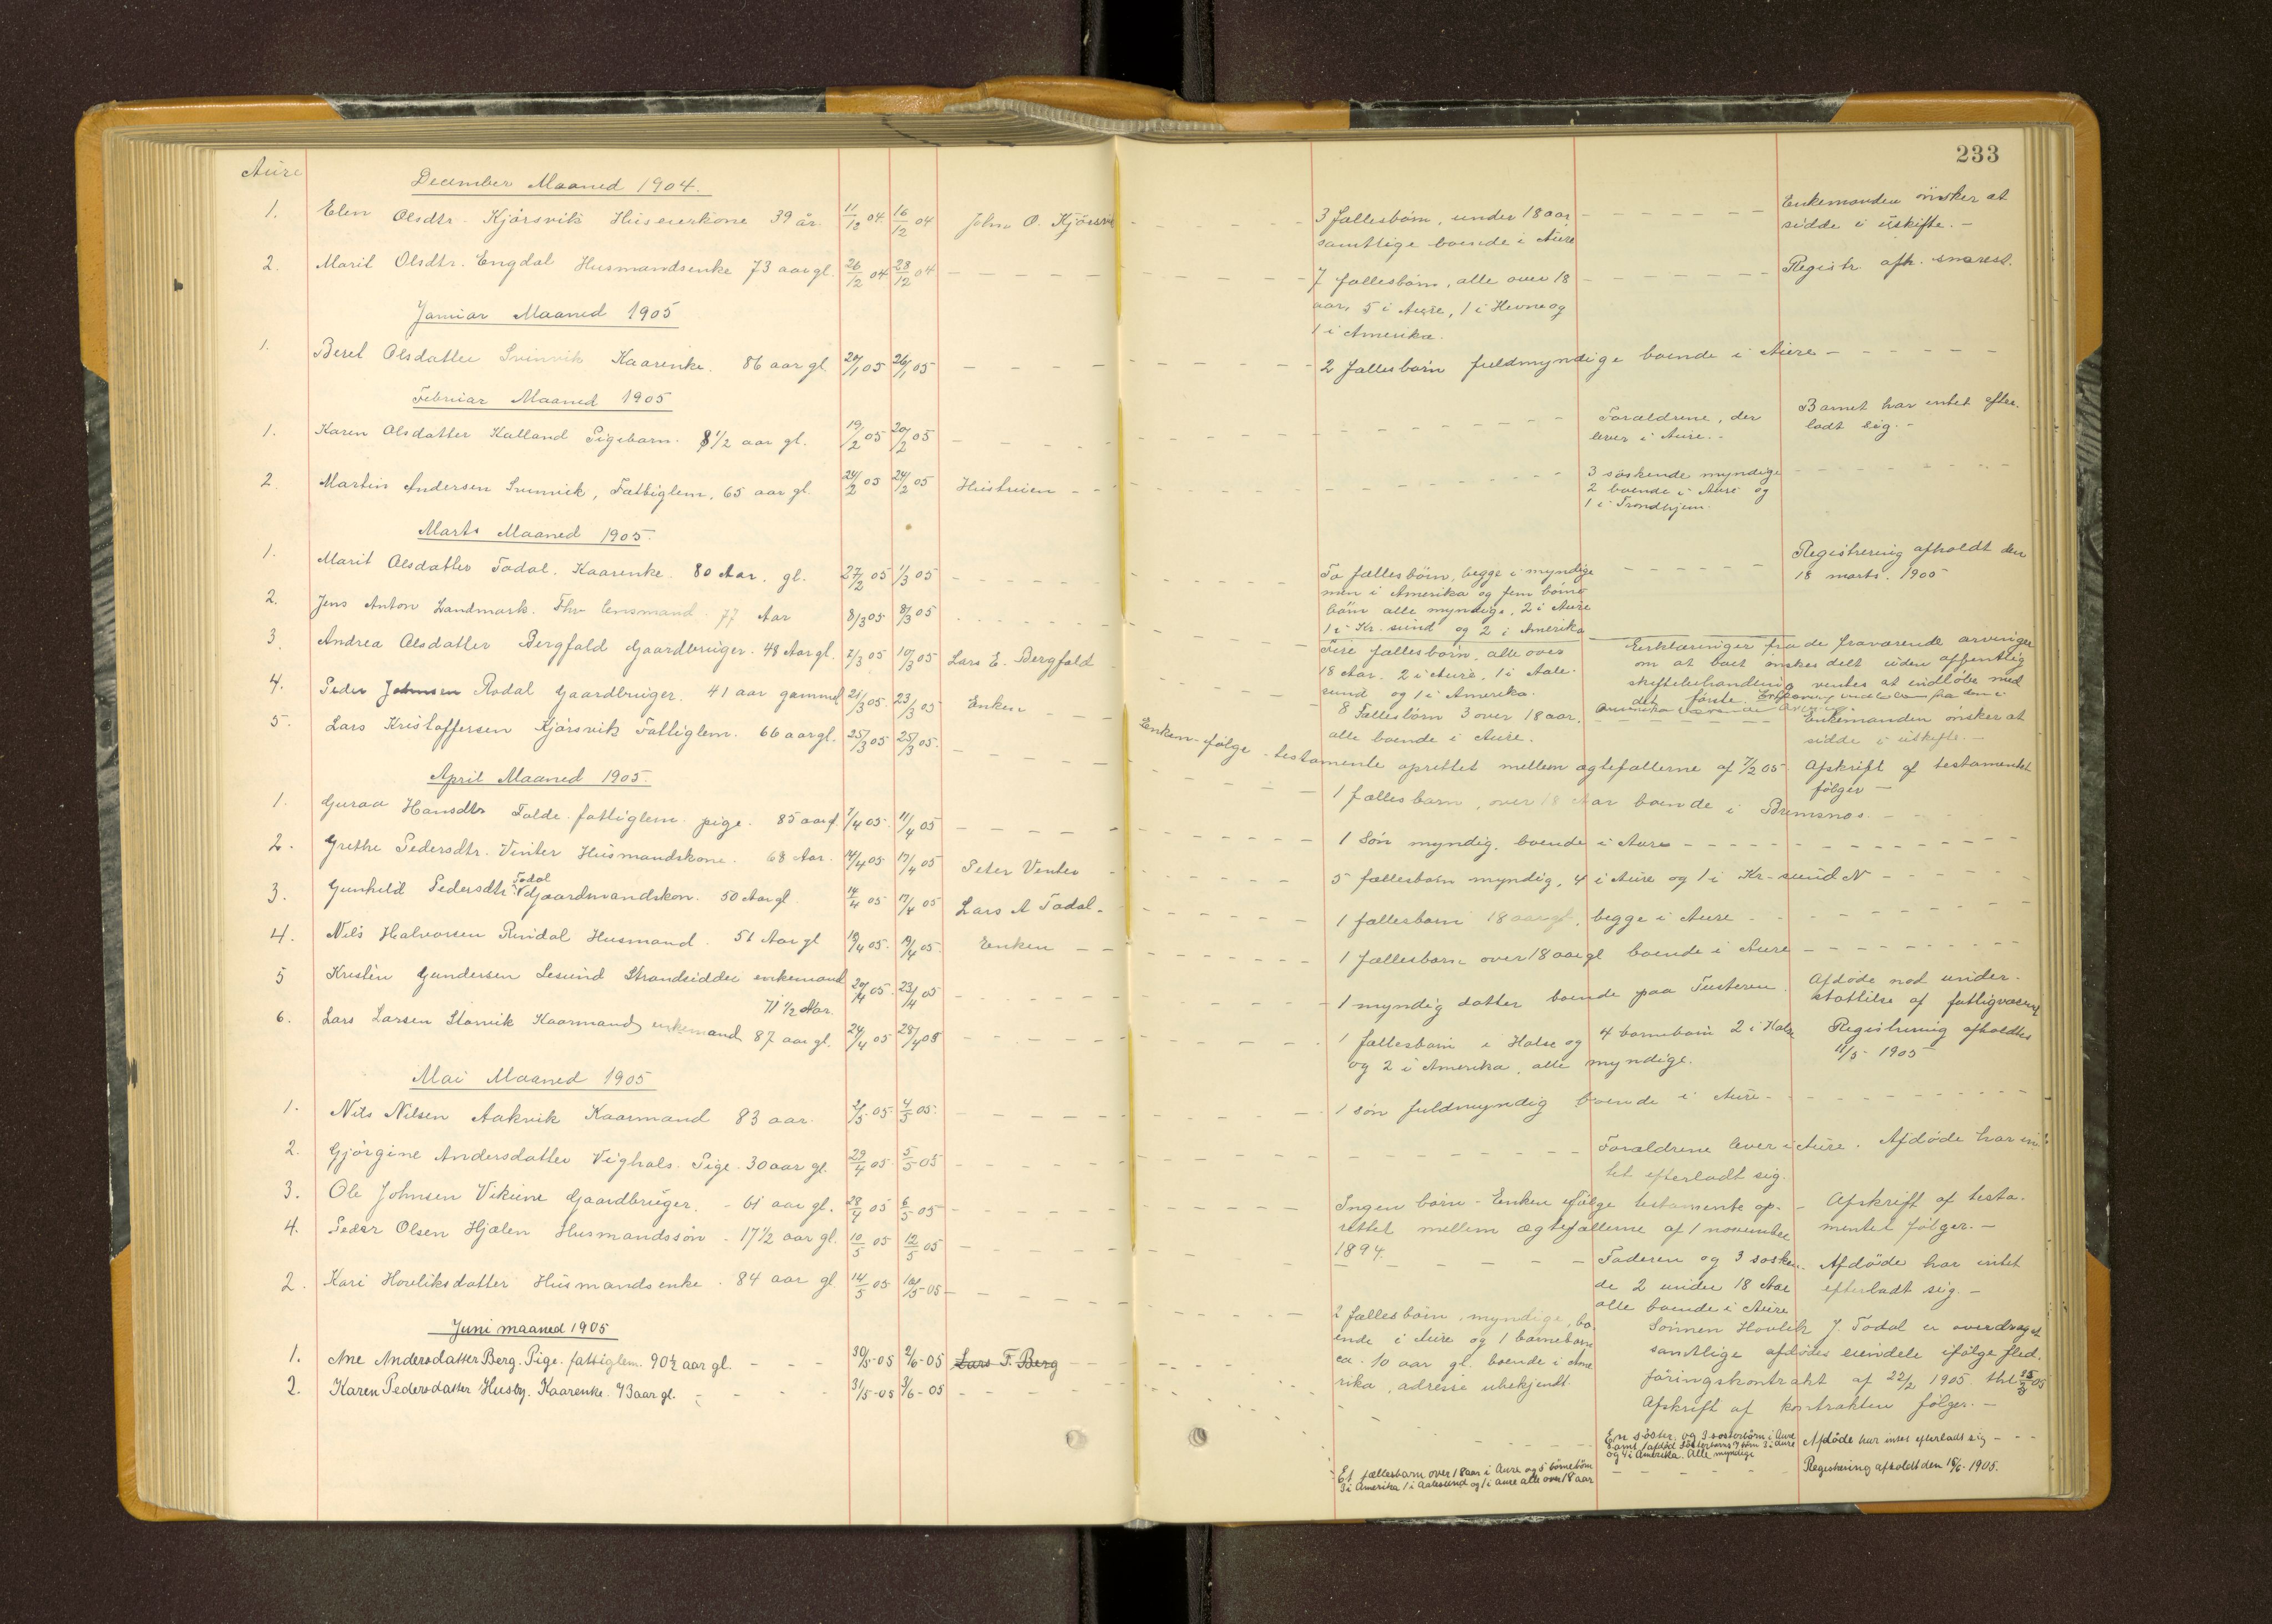 Aure
233
December Maaned 1904.
1. Elen Olsdtr. Kjörsvik Huseierkone 39 år. 11/12 04 16/12 04 John O. Kjörsvik
3 fællesbörn, under 18 aar
samtlige boende i Aure
Enkemanden önsker at
sidde i uskifte. -
2. Marit Olsdtr. Engdal Husmandsenke 73 aar gl. 26/12 04 28/12 04
7 fællesbörn, alle over 18
aar, 5 i Aure, 1 i Hevne og
1 i Amerika.
Registr. afh. snarest.
Januar Maaned 1905
1. Beret Olsdatter Svinvik Kaarenke. 86 aar gl. 20/1 05 26/1 05
2 fællesbörn fuldmyndige boende i Aure
Februar Maaned 1905
1. Karen Olsdatter Kalland Pigebarn. 8 1/2 aar gl. 19/2 05 20/2 05
Forældrene, der
lever i Aure. -
Barnet har intet efter-
ladt sig. -
2. Martin Andersen Svinvik, Fattiglem, 65 aar gl. 24/2 05 24/2 05 Hustruen
3 söskende myndige
2 boende i Aure og
1 i Trondhjem.
Marts Maaned 1905.
1. Marit Olsdatter Todal. Kaarenke. 80 Aar. gl. 27/2 05 1/3 05
To fællesbörn, begge i myndige
men i Amerika og fem börne-
börn alle myndige, 2 i Aure
1 i Kr. sund og 2 i Amerika
Registrering afholdt den
18 marts. 1905
2. Jens Anton Landmark. Fhv lensmand. 77 Aar 8/3 05 8/3 05
Fire fællesbörn, alle over
18 Aar. 2 i Aure, 1 i Aale-
sund og 1 i Amerika.
Erklæringer fra de fraværende arvinger
om at boet önskes delt uden offentlig
skiftebehandling ventes at indlöbe med
det förste.
3. Andrea Olsdatter Bergfald Gaardbruger. 48 Aar gl. 7/3 05 10/3 05 Lars E. Bergfald
8 Fællesbörn 3 over 18 aar,
alle boende i Aure.
Enkemanden önsker at
sidde i uskifte. -
4. Peder Johnsen Rodal Gaardbruger. 41 aar gammel 21/3 05 23/3 05 Enken
Enken ifölge testamente oprettet mellem ægtefællerne af 7/2 05 Afskrift af testamentet
fölger -
5. Lars Kristoffersen Kjörsvik Fattiglem. 66 aar gl. 25/3 05 25/3 05.
1 fælles barn, over 18 Aar boende i Bremsnes.
April Maaned 1905.
1. Guraa Hansdtr Folde. fattiglem. pige. 85 aar gl. 7/4 05. 11/4 05
1 Sön myndig, boende i Aure
2. Grethe Pedersdtr. Vinter Husmandskone. 68 Aar. 14/4 05 17/4 05 Peter Venter
5 fællesbörn myndig, 4 i Aure og 1 i Kr-sund N
3. Gunhild Pedersdtr. Todal Gaardmandskon. 50 Aar gl. 14/4 05 17/4 05 Lars A Todal.
1 fællesbarn 18 aar gl. begge i Aure
4. Nils Halvorsen Rindal Husmand. 51 Aar gl 18/4 05. 19/4 05. Enken
1 fællesbarn over 18 aar gl boende i Aure
5 Kristen Gundersen Lesund Strandsidder enkemand
71 1/2 Aar. 20/4 05. 23/4 05
1 myndig datter boende paa Tusteren.
Afdöde nöd under-
støttelse af fattigvæsen
6. Lars Larsen Stomvik Kaarmand enkemand 87 aar gl. 24/4 05 28/4 05
1 fællesbarn i Halse og 4 barnebörn 2 i Halse
og 2 i Amerika, alle myndige.
Registrering afholdtes
11/5 1905
Mai Maaned 1905
1. Nils Nilsen Aakvik Kaarmand 83 aar. 2/5 05. 4/5 05.
1 sön fuldmyndig boende i Aure.
2. Gjörgine Andersdatter Vighals. Pige. 30 aar gl. 29/4 05. 5/5 05
Forældrene lever i Aure. Afdöde har in-
tet efterladt sig.
3. Ole Johnsen Vikene Gaardbruger. - 61 aar gl. 28/4 05 6/5 05
Ingen börn - Enken ifölge testamente op-
rettet mellem ægtefællerne af 1 november
1894.
Afskrift af testa-
mentet fölger. -
4. Peder Olsen Hjælen Husmandssön - 17 1/2 aar gl. 10/5 05 12/5 05
Faderen og 3 sösken-
de 2 under 18 Aar
alle boende i Aure
Afdöde har intet
efterladt sig. -
2. Kari Hovliksdatter Husmandsenke. 84 aar gl. 14/5 05 16/5 05
2 fællesbörn, myndige, bo-
ende i Aure og 1 barnebarn
ca. 10 aar gl. boende i Ame
rika, adresse ubekjendt.
Sönnen Hovlik J. Todal er overdraget
samtlige afdödes eiendele ifölge fled-
föringskontrakt af 22/2 1905. thl 25/2 05
Afskrift af kontrakten fölger. -
Juni maaned 1905
1. Ane Andersdatter Berg. Pige. fattiglem. 90 1/2 aar gl. 30/5-05 2/6-05 Lars T. Berg
En söster, og 3 sösterbörn i Aure
samt 1 afdöd sösterbarns 7 börn 3 i Aure
og 4 i Amerika. Alle myndige
Afdöde har intet efterladt sig
2. Karen Pedersdatter Husby. Kaarenke. 73 aar gl. 31/5-05 3/6-05
Et fællesbarn over 18 aar i Aure og 5 börnebörn
3 i Amerika 1 i Aalesund og 1 i Aure alle over 18 aar
Registrering afholdt den 15/6-1905.